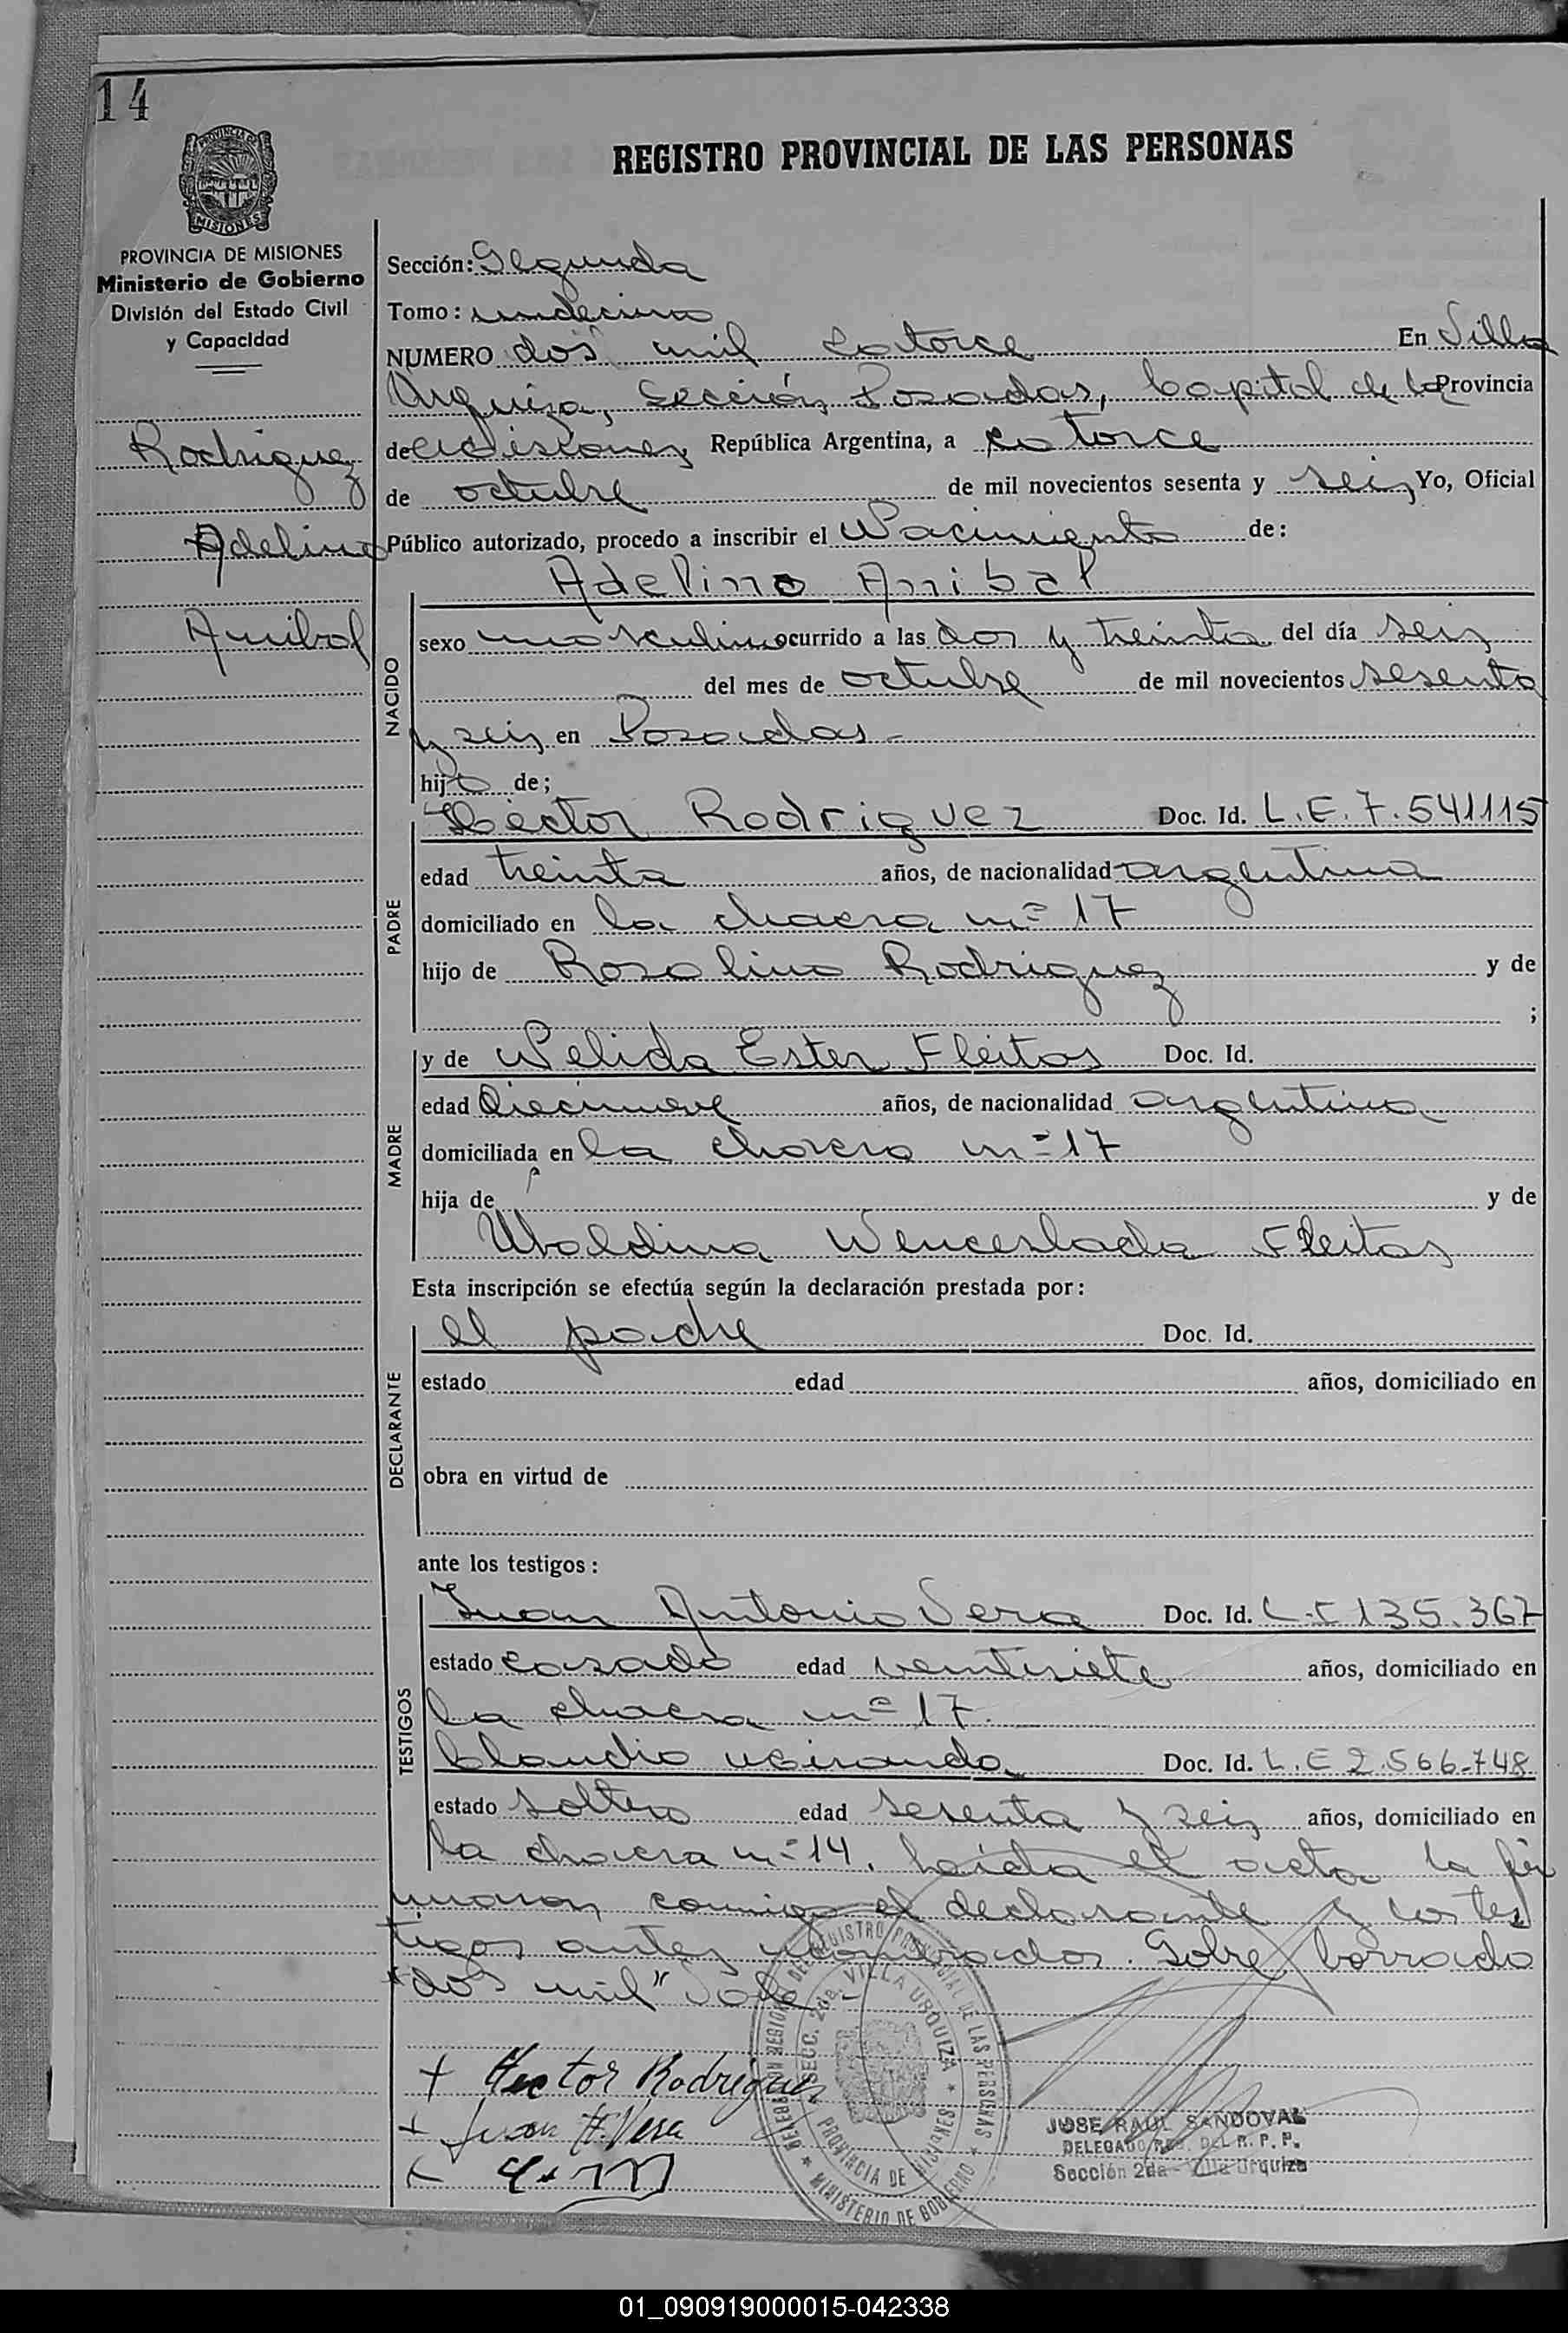 14
PROVINCIA DE
MISIONES
REGISTRO PROVINCIAL DE LAS PERSONAS
PROVINCIA DE MISIONES
Ministerio de Gobierno
División del Estado Civil
y Capacidad
Rodriguez
Adelino
Anibal
Sección: Segunda
Tomo: undecimo
NUMERO dos mil catorce En Villa
Urquiza, Sección Posadas, Capital de la Provincia
de Misiones República Argentina, a catorce
de octubre de mil novecientos sesenta y seis Yo, Oficial
Público autorizado, procedo a inscribir el Nacimiento de:
NACIDO
Adelino Anibal
sexo masculino ocurrido a las dos y treinta del día seis
del mes de octubre de mil novecientos sesenta
y seis en Posadas.-
hijo de;
PADRE
Héctor Rodriguez Doc. Id. L.E. 7.541115
edad treinta años, de nacionalidad argentina
domiciliado en la chacra nº 17
hijo de Rosalino Rodriguez y de
;
MADRE
y de Nelida Ester Fleitas Doc. Id.
edad Diecinueve años, de nacionalidad argentina
domiciliada en la chacra nº 17
hija de y de
Ubaldina Wenceslada Fleitas
Esta inscripción se efectúa según la declaración prestada por:
DECLARANTE
el padre Doc. Id.
estado edad años, domiciliado en
obra en virtud de
ante los testigos:
TESTIGOS
Juan Antonio Vera Doc. Id. L.E 135.367
estado casado edad veintisiete años, domiciliado en
la chacra nº 17.
Claudio Miranda Doc. Id. L.E 2.566.748
estado soltero edad sesenta y seis años, domiciliado en
la chacra nº 14. Leida el acta la fir
maron conmigo el declarante y los tes
tigos antes nombrados. Sobre borrado
"dos mil" Vale.-
+ Hector Rodriguez
+ Juan A. Vera
DELEGACION REGIONAL DEL REGISTRO PROVINCIAL DE LAS PERSONAS
SECC. 2da. VILLA URQUIZA
PROVINCIA DE MISIONES
MINISTERIO DE GOBIERNO
JOSE RAUL SANDOVAL
DELEGADO REG. DEL R. P. P.
Sección 2da - Villa Urquiza
01_090919000015-042338